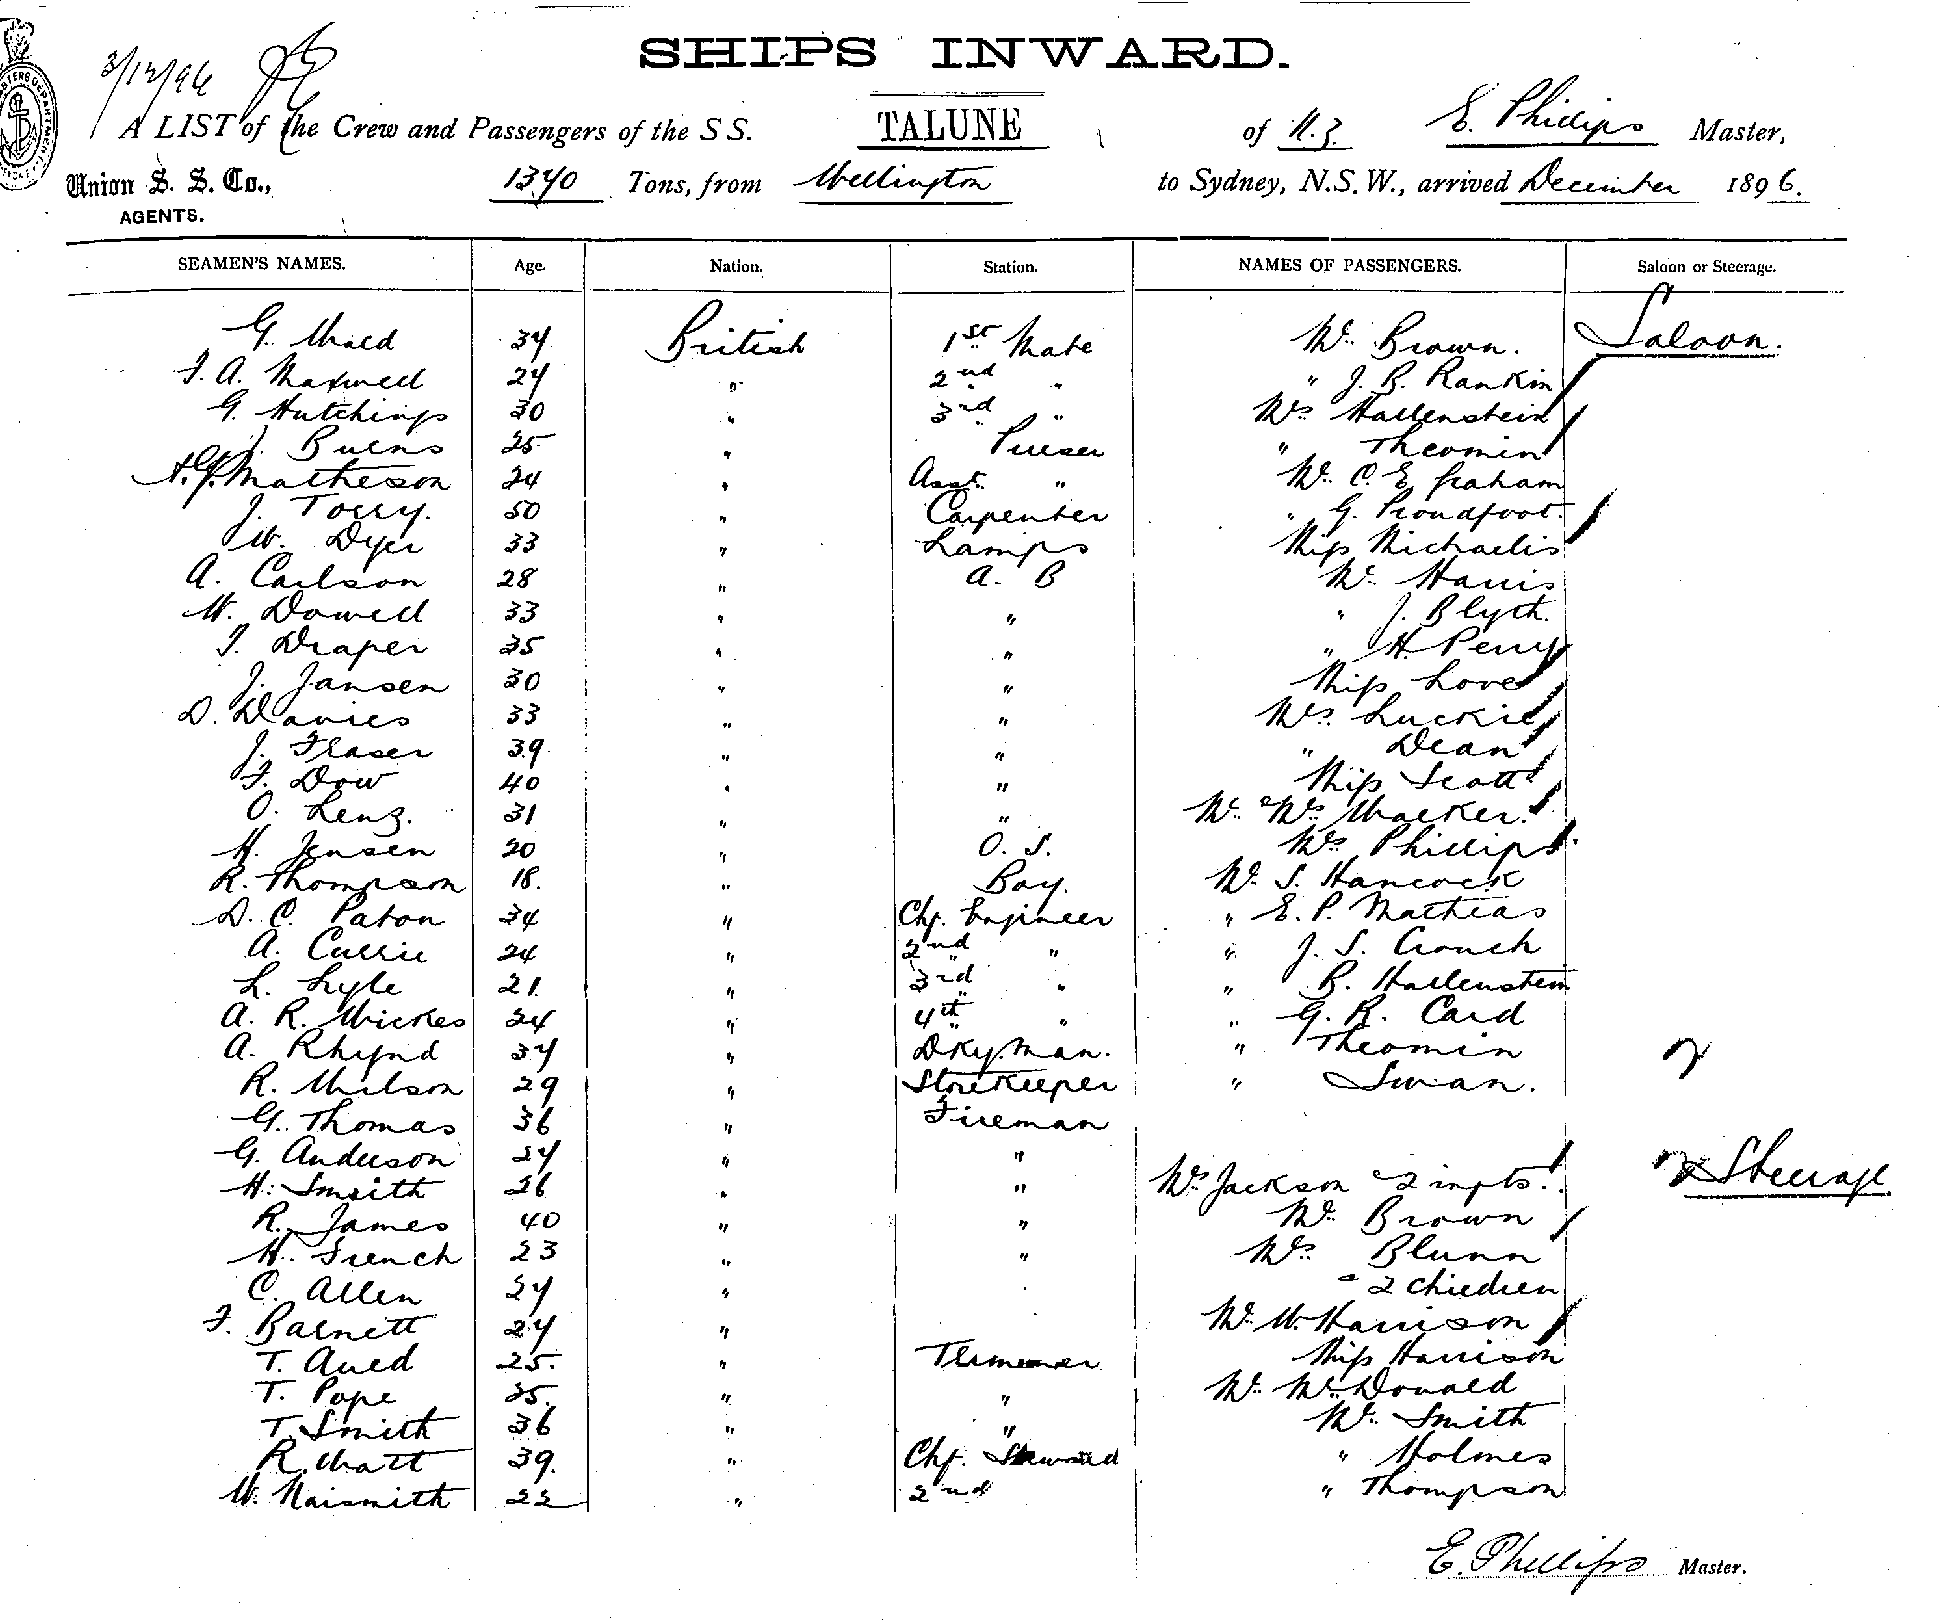 SHIPS INWARD.
3/12/96
A LIST of the Crew and Passengers of the S S. TALUNE of N.Z. E. Phillips Master,
Union S. S. Co., 1370 Tons, from Wellington to Sydney, N.S.W., arrived December 1896.
AGENTS.
SEAMEN'S NAMES. Age. Nation. Station. NAMES OF PASSENGERS. Saloon or Steerage.
G. Wald 34 British 1st Mate Mr. Brown. Saloon.
F. A. Maxwell 24 " 2nd " " J. B. Rankin
G. Hutchings 30 " 3rd " Mrs Hallenstein
J. Burns 25 " Purser " Theomin
Matheson 24 " Asst. " Mr. C. E. Graham
J. Torry. 50 " Carpenter " G. Proudfoot.
W. Dyer 33 " Lamps Miss Michaelis
A. Carlson 28 " A. B Mr. Harris
W. Dowell 33 " " " J. Blyth.
T. Draper 35 " " " H. Perry
J. Jansen 30 " " Miss Love
D. Davies 33 " " Mrs. Luckie
J. Fraser 39 " " " Dean
F. Dow 40 " " Miss Scott
O. Lenz. 31 " " Mr. & Mrs Walker.
H. Jensen 20 " O. S. Mrs Phillips
R. Thompson 18. " Boy. Mr. S. Hancock
D. C. Paton 34 " Chf. Engineer " E. P. Mathias
A. Currie 24 " 2nd " " J. S. Crouch
L. Lyle 21 " 3rd " " B. Hallenstein
A. R. Wickes 24 " 4th " " G. R. Card
A. Rhynd 34 " Dkyman. " Theomin
R. Wilson 29 " Storekeeper " Swan.
G. Thomas 36 " Fireman
G. Anderson 24 " "
H. Smith 26 " " Mrs Jackson & 2 infts. Steerage
R. James 40 " " Mr. Brown
H. French 23 " " Mrs. Blunn
C. Allen 24 " & 2 children
F. Barnett 24 " Mr. W. Harrison
T. Auld 25. " Trimmer Miss Harrison
T. Pope 25. " " Mr. McDonald
T. Smith 36 " " Mr. Smith
R. Watt 39. " Chf. Steward " Holmes
W. Naismith 22 " 2nd " Thompson
E. Phillips Master.